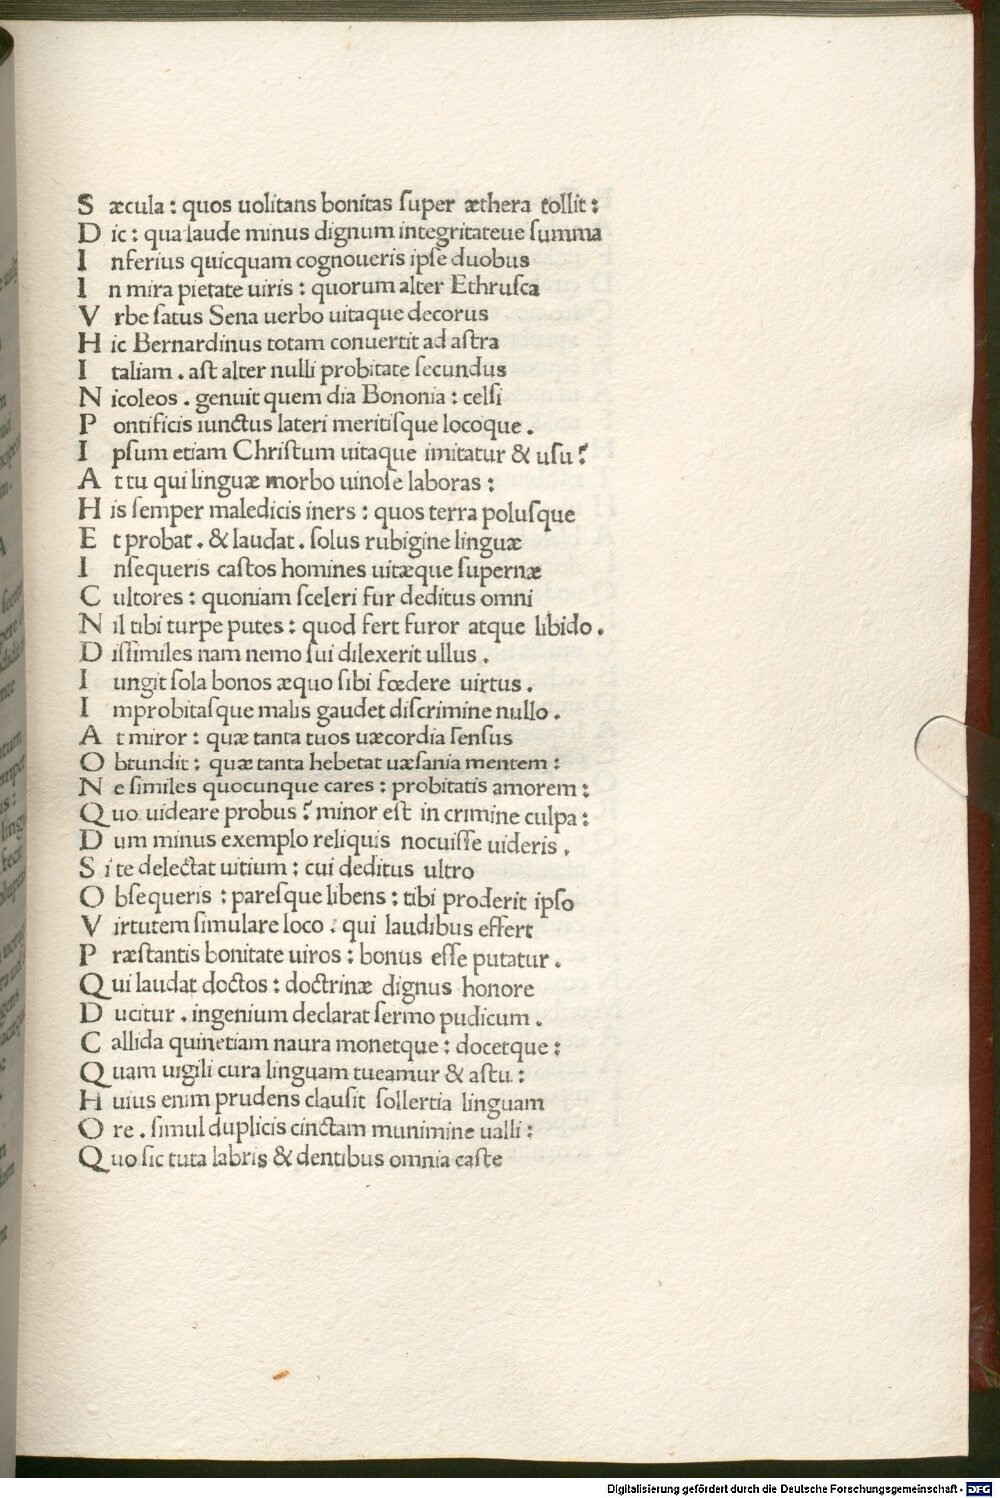 S æcula : quos uolitans bonitas ſuper æthera tollit :
D ic : qua laude minus dignum integritateue ſumma
I nferius quicquam cognoueris ipſe duobus
I n mira pietate uiris : quorum alter Ethruſca
V rbe ſatus Sena uerbo uitaque decorus
H ic Bernardinus totam conuertit ad aſtra
I taliam . aſt alter nulli probitate ſecundus
N icoleos . genuit quem dia Bononia : celſi
P ontificis iunctus lateri meritiſque locoque .
I pſum etiam Chriſtum uitaque imitatur & uſu ?
A t tu qui linguæ morbo uinoſe laboras :
H is ſemper maledicis iners : quos terra poluſque
E t probat . & laudat . ſolus rubigine linguæ
I nſequeris caſtos homines uitæque ſupernæ
C ultores : quoniam ſceleri fur deditus omni
N il tibi turpe putes : quod fert furor atque libido .
D iſſimiles nam nemo ſui dilexerit ullus .
I ungit ſola bonos æquo ſibi fœdere uirtus .
I mprobitaſque malis gaudet diſcrimine nullo .
A t miror : quæ tanta tuos uæcordia ſenſus
O btundit : quæ tanta hebetat uæſania mentem :
N e ſimiles quocunque cares : probitatis amorem :
Q uo uideare probus ? minor eſt in crimine culpa :
D um minus exemplo reliquis nocuiſſe uideris .
S i te delectat uitium : cui deditus ultro
O bſequeris : pareſque libens : tibi proderit ipſo
V irtutem ſimulare loco : qui laudibus effert
P ræſtantis bonitate uiros : bonus eſſe putatur .
Q ui laudat doctos : doctrinæ dignus honore
D ucitur . ingenium declarat ſermo pudicum .
C allida quinetiam naura monetque : docetque :
Q uam uigili cura linguam tueamur & aſtu :
H uius enim prudens clauſit ſollertia linguam
O re . ſimul duplicis cinctam munimine ualli :
Q uo ſic tuta labris & dentibus omnia caſte
Digitalisierung gefördert durch die Deutsche Forschungsgemeinschaft - DFG